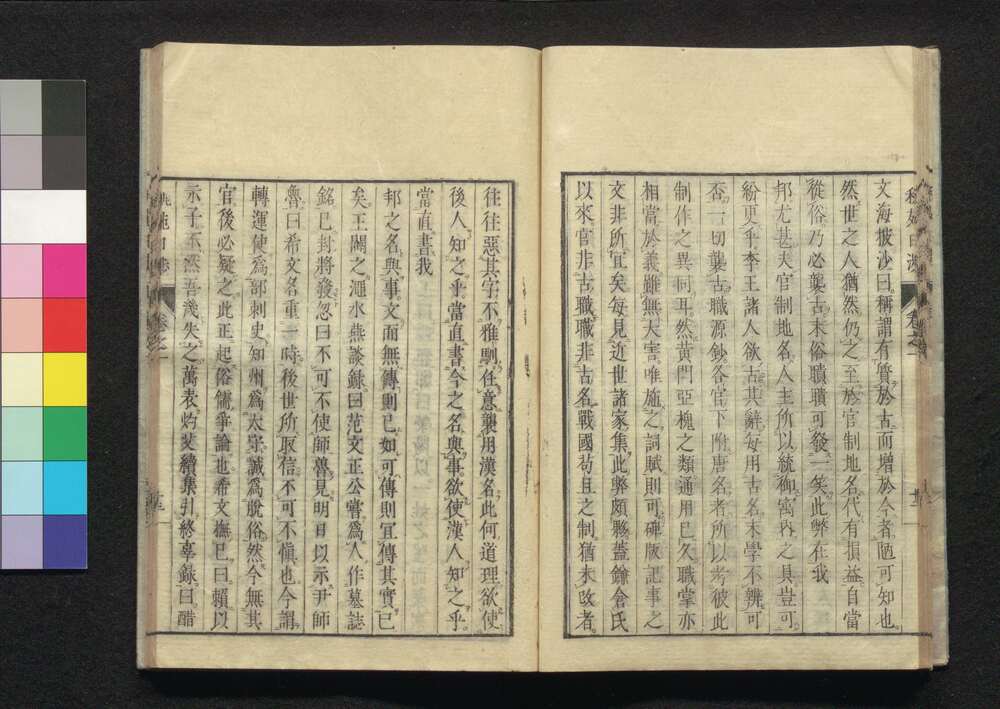 文海披沙曰稱謂有質於古而增於今者陋可知也
然世之人猶然仍之至於官制地名代有損益自當
從俗乃必襲古末俗聵聵可發一笑此弊在我
邦尤甚夫官制地名人主所以統御寓內之具豈可
紛更乎李王諸人欲古其辭每用古名末學不辨可
否一切襲古職源鈔各官下附唐名者所以考彼此
制作之異同耳然黃門亞槐之類通用已久職掌亦
相當於義雖無大害唯施之詞賦則可碑版記事之
文非所宜矣每見近世諸家集此弊頗夥蓋鎌倉氏
以來官非古職職非古名戰國苟且之制猶未改者
往往惡其字不雅馴任意襲用漢名此何道理欲使
後人知之乎當直書今之名與事欲使漢人知之乎
當直書我
邦之名與事文而無傳則已如可傳則宜傳其實已
矣王闢之澠水燕談錄曰范文正公嘗爲人作墓誌
銘已封將發忽曰不可不使師魯見明日以示尹師
魯曰希文名重一時後世所取信不可不愼也今謂
轉運使爲部刺史知州爲太守誠爲脫俗然今無其
官後必疑之此正起俗儒爭論也希文撫已曰賴以
示子不然吾幾失之萬表灼艾續集引終辜錄曰醋
卷之一